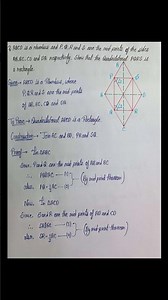 ABCD is a rhombus and P, Q, R and S are the mid points of the sides
AB, BC, CD and DA respectively. Show that the quadrilateral PQRS is
a rectangle.
Given → ABCD is a Rhombus, where
P, Q, R and S are the mid points
of AB, BC, CD and DA
To Prove → Quadrilateral ABCD is a Rectangle.
Construction → Join AC and BD, PR and SQ.
Proof → In ΔABC
Since P and Q are the mid points of AB and BC
∴ PQ||AC — (1)
also PQ = ½ AC — (2)
(By mid point theorem)
Now in ΔACD
Since S and R are the mid points of AD and CD
∴ SR||AC — (3)
also SR = ½ AC — (4)
(By mid-point theorem)